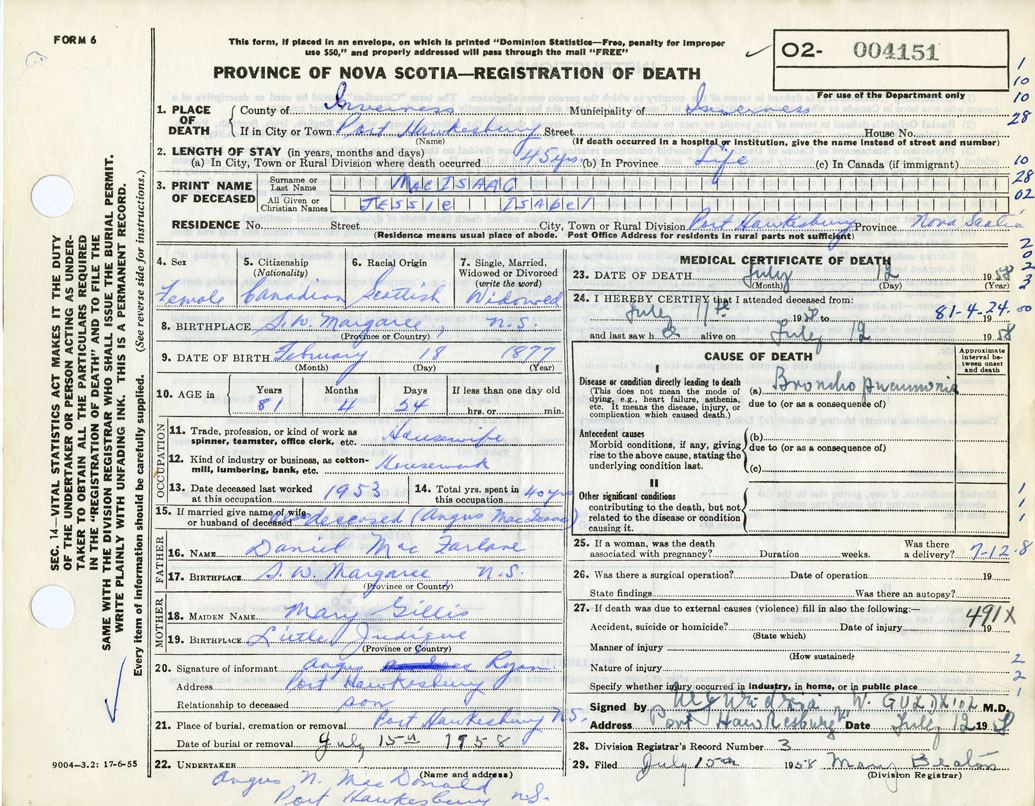 FORM 6
This form, if placed in an envelope, on which is printed "Dominion Statistics—Free, penalty for improper
use $50," and properly addressed will pass through the mail "FREE"
02- 004151
For use of the Department only
PROVINCE OF NOVA SCOTIA—REGISTRATION OF DEATH
1. PLACE OF DEATH County of Inverness Municipality of Inverness
If in City or Town Port Hawkesbury Street House No.
(Name) (If death occurred in a hospital or institution, give the name instead of street and number)
2. LENGTH OF STAY (in years, months and days)
(a) In City, Town or Rural Division where death occurred 45 yrs (b) In Province Life (c) In Canada (if immigrant)
3. PRINT NAME OF DECEASED Surname or Last Name MACISAAC
All Given or Christian Names JESSIE ISABEL
RESIDENCE No. Street City, Town or Rural Division Port Hawkesbury Province Nova Scotia
(Residence means usual place of abode. Post Office Address for residents in rural parts not sufficient)
4. Sex 5. Citizenship (Nationality) 6. Racial Origin 7. Single, Married, Widowed or Divorced (write the word)
Female Canadian Scottish Widowed
8. BIRTHPLACE S. W. Margaree, N.S.
(Province or Country)
9. DATE OF BIRTH February 18 1877
(Month) (Day) (Year)
10. AGE in Years Months Days If less than one day old
81 4 24 hrs. or min.
11. Trade, profession, or kind of work as spinner, teamster, office clerk, etc. Housewife
OCCUPATION
12. Kind of industry or business, as cotton-mill, lumbering, bank, etc. Housework
13. Date deceased last worked at this occupation 1953 14. Total yrs. spent in this occupation 40 yrs
15. If married give name of wife or husband of deceased deceased (Angus MacIsaac)
FATHER
16. NAME Daniel MacFarlane
17. BIRTHPLACE S. W. Margaree, N.S.
(Province or Country)
MOTHER
18. MAIDEN NAME Mary Gillis
19. BIRTHPLACE Little Judique
(Province or Country)
20. Signature of informant Angus Ryan
Address Port Hawkesbury
Relationship to deceased son
21. Place of burial, cremation or removal Port Hawkesbury N.S.
Date of burial or removal July 15th 1958
22. UNDERTAKER Angus N. MacDonald
(Name and address)
Port Hawkesbury N.S.
9004—3.2: 17-6-55
SEC. 14—VITAL STATISTICS ACT MAKES IT THE DUTY
OF THE UNDERTAKER OR PERSON ACTING AS UNDER-
TAKER TO OBTAIN ALL THE PARTICULARS REQUIRED
IN THE "REGISTRATION OF DEATH" AND TO FILE THE
SAME WITH THE DIVISION REGISTRAR WHO SHALL ISSUE THE BURIAL PERMIT.
WRITE PLAINLY WITH UNFADING INK. THIS IS A PERMANENT RECORD.
Every item of information should be carefully supplied. (See reverse side for instructions.)
MEDICAL CERTIFICATE OF DEATH
23. DATE OF DEATH July 12 1958
(Month) (Day) (Year)
24. I HEREBY CERTIFY that I attended deceased from:
July 11th 1958 to 81-4-24.00
and last saw h alive on July 12 1958
CAUSE OF DEATH
Approximate interval between onset and death
I
Disease or condition directly leading to death
(This does not mean the mode of dying, e.g., heart failure, asthenia, etc. It means the disease, injury, or complication which caused death.)
(a) Broncho pneumonia
due to (or as a consequence of)
Antecedent causes
Morbid conditions, if any, giving rise to the above cause, stating the underlying condition last.
(b)
due to (or as a consequence of)
(c)
II
Other significant conditions
contributing to the death, but not related to the disease or condition causing it.
25. If a woman, was the death associated with pregnancy? Duration weeks. Was there a delivery? 7-12-8
26. Was there a surgical operation? Date of operation 19
State findings Was there an autopsy?
27. If death was due to external causes (violence) fill in also the following:— 491X
Accident, suicide or homicide? Date of injury 19
(State which)
Manner of injury
(How sustained)
Nature of injury
Specify whether injury occurred in industry, in home, or in public place
Signed by M.D.
Address Port Hawkesbury Date July 12 1958
28. Division Registrar's Record Number 3
29. Filed July 15th 1958 Mary Beaton
(Division Registrar)
1
10
10
28
10
28
02
2
0
2
3
1
1
1
2
2
1